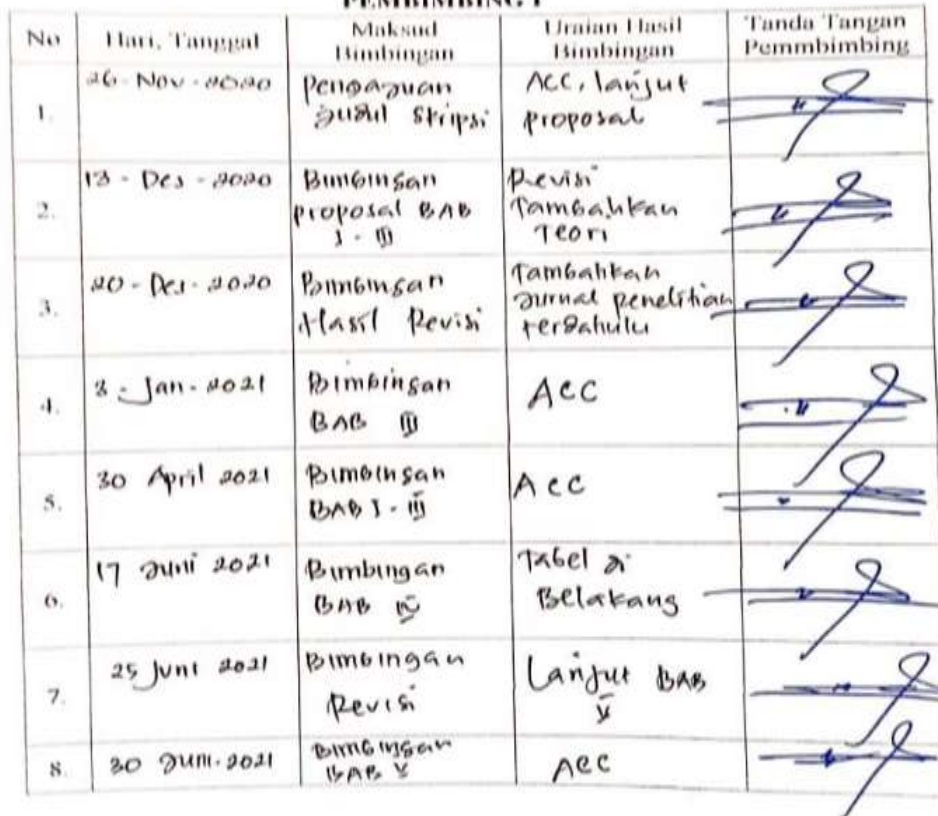 PEMBIMBING I
No Hari, Tanggal Maksud Bimbingan Uraian Hasil Bimbingan Tanda Tangan Pemmbimbing
1. 26-Nov-2020 Pengajuan Judul Skripsi ACC, lanjut proposal
2. 13-Des-2020 Bimbingan proposal BAB I-III Revisi Tambahkan Teori
3. 20-Des-2020 Bimbingan Hasil Revisi Tambahkan Jurnal penelitian terdahulu
4. 3-Jan-2021 Bimbingan BAB III ACC
5. 30 April 2021 Bimbingan BAB I-III Acc
6. 17 Juni 2021 Bimbingan BAB IV Tabel di Belakang
7. 25 Juni 2021 Bimbingan Revisi Lanjut BAB V
8. 30 Juni.2021 Bimbingan BAB V Acc